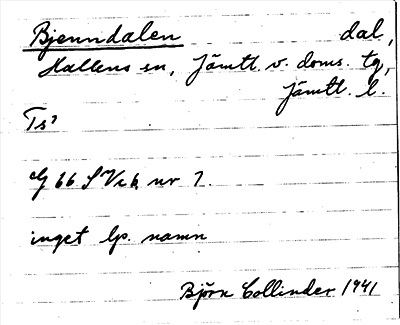 Bjenndalen dal,
Hallens sn, Jämtl. v. doms. tg,
Jämtl. l.
Ts?
G 66 SV nr 7.
inget lp. namn
Björn Collinder 1941